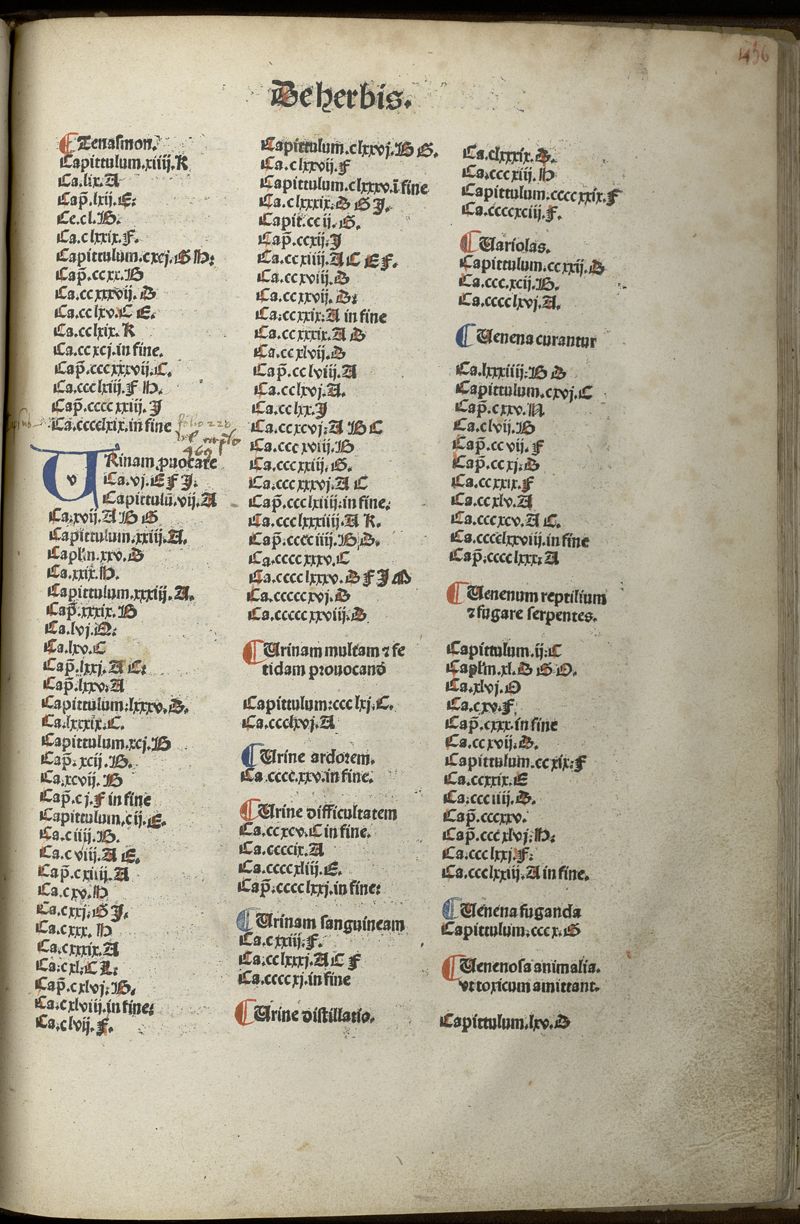 436
De herbis.
Tenasmon.
Capittulum.xiiij.K
Ca.lix.A
Cap̄.lxij.E.
Ce.cl.H.
Ca.clxxix.f.
Capittulum.cxcj.G H.
Cap̄.ccxx.H
Ca.ccxxxvij.D
Ca.cclxv.C E.
Ca.cclxix.K
Ca.ccxcj.in fine.
Cap̄.cccxxxvij.C.
Ca.ccclxiij.f H.
Cap̄.ccccxxiij.J
Ca.cccclxix.in fine
URinam ꝓuocare
Ca.vj.E f J.
Capittulū.vij.A
Ca.xvij.A B G
Capittulum.xxiij.A.
Caplm.xxv.D
Ca.xxix.H.
Capittulum.xxxiij.A.
Cap̄.xxxix.B
Ca.lvj.E.
Ca.lxv.C
Cap̄.lxxj.A C.
Cap̄.lxxv.A
Capittulum.lxxxv.D.
Ca.lxxxix.C.
Capittulum.xcj.B
Cap̄.xcij.B.
Ca.xcvij.B
Cap̄.cj.f in fine
Capittulum.cij.E.
Ca.ciiij.B.
Ca.cviij.A E.
Cap̄.cxiiij.A
Ca.cxv.H
Ca.cxxj.G J.
Ca.cxxx.H
Ca.cxxxix.A
Ca.cxl.C L.
Cap̄.cxlvj.B.
Ca.cxlviij.in fine.
Ca.clvij.f.
Capittulum.clxxvj.B G.
Ca.clxxvij.f
Capittulum.clxxxv.ī fine
Ca.clxxxix.D G J.
Capit.ccij.G.
Cap̄.ccxij.J
Ca.ccxiiij.A C E f.
Ca.ccxviij.D
Ca.ccxxvij.D.
Ca.ccxxix.A in fine
Ca.ccxxxix.A D
Ca.ccxlvij.D
Cap.cclviij.A
Ca.cclxvj.A.
Ca.cclxx.J
Ca.ccxcvj.A B C
Ca.cccxviij.B
Ca.cccxxiij.G.
Ca.cccxxxvj.A C
Cap̄.ccclxiiij.in fine.
Ca.ccclxxxiiij.A K.
Cap̄.cccciiij.B D.
Ca.ccccxxxv.C
Ca.cccclxxxv.D f J M
Ca.cccccxvj.D
Ca.cccccxxviij.D.
Urinam multam ⁊ fe
tidam prouocandō
Capittulum.ccclxj.C.
Ca.ccclxvj.A
Urine ardorem.
Ca.cccc.xxv.in fine.
Urine difficultatem
Ca.ccxcv.C in fine.
Ca.ccccix.A
Ca.ccccxliij.E.
Cap̄.cccclxxj.in fine.
Urinam sanguineam
Ca.cxxiij.f.
Ca.cclxxxj.A C f
Ca.ccccxj.in fine
Urine distillatio.
Ca.clxxxix.D.
Ca.cccxiij.H
Capittulum.ccccxxix.f
Ca.ccccxciij.f.
Uariolas.
Capittulum.ccxxij.D
Ca.ccc.xcij.B.
Ca.cccclxvj.A.
Uenena curantur
Ca.lxxxiiij.B D
Capittulum.cxvj.C
Cap̄.cxxv.N
Ca.clvij.B
Cap̄.ccvij.f
Cap̄.ccxj.D
Ca.ccxxix.f
Ca.ccxlv.A
Ca.cccxcv.A C.
Ca.cccclxxviij.in fine
Cap̄.cccclxxx.A
Uenenum reptilium
⁊ fugare serpentes.
Capittulum.ij.C
Caplm.xl.D G O.
Ca.xlvj.O
Ca.cxv.f.
Cap̄.cxxx.in fine
Ca.ccxvij.D.
Capittulum.ccxix.f
Ca.ccxxix.E
Ca.ccciiij.D.
Cap̄.cccxxv.
Cap̄.cccxlvj.H.
Ca.ccclxxj.f.
Ca.ccclxxiij.A in fine.
Uenena fuganda
Capittulum.cccx.G
Uenenosa animalia.
vt toxicum amittant.
Capittulum.lxv.D